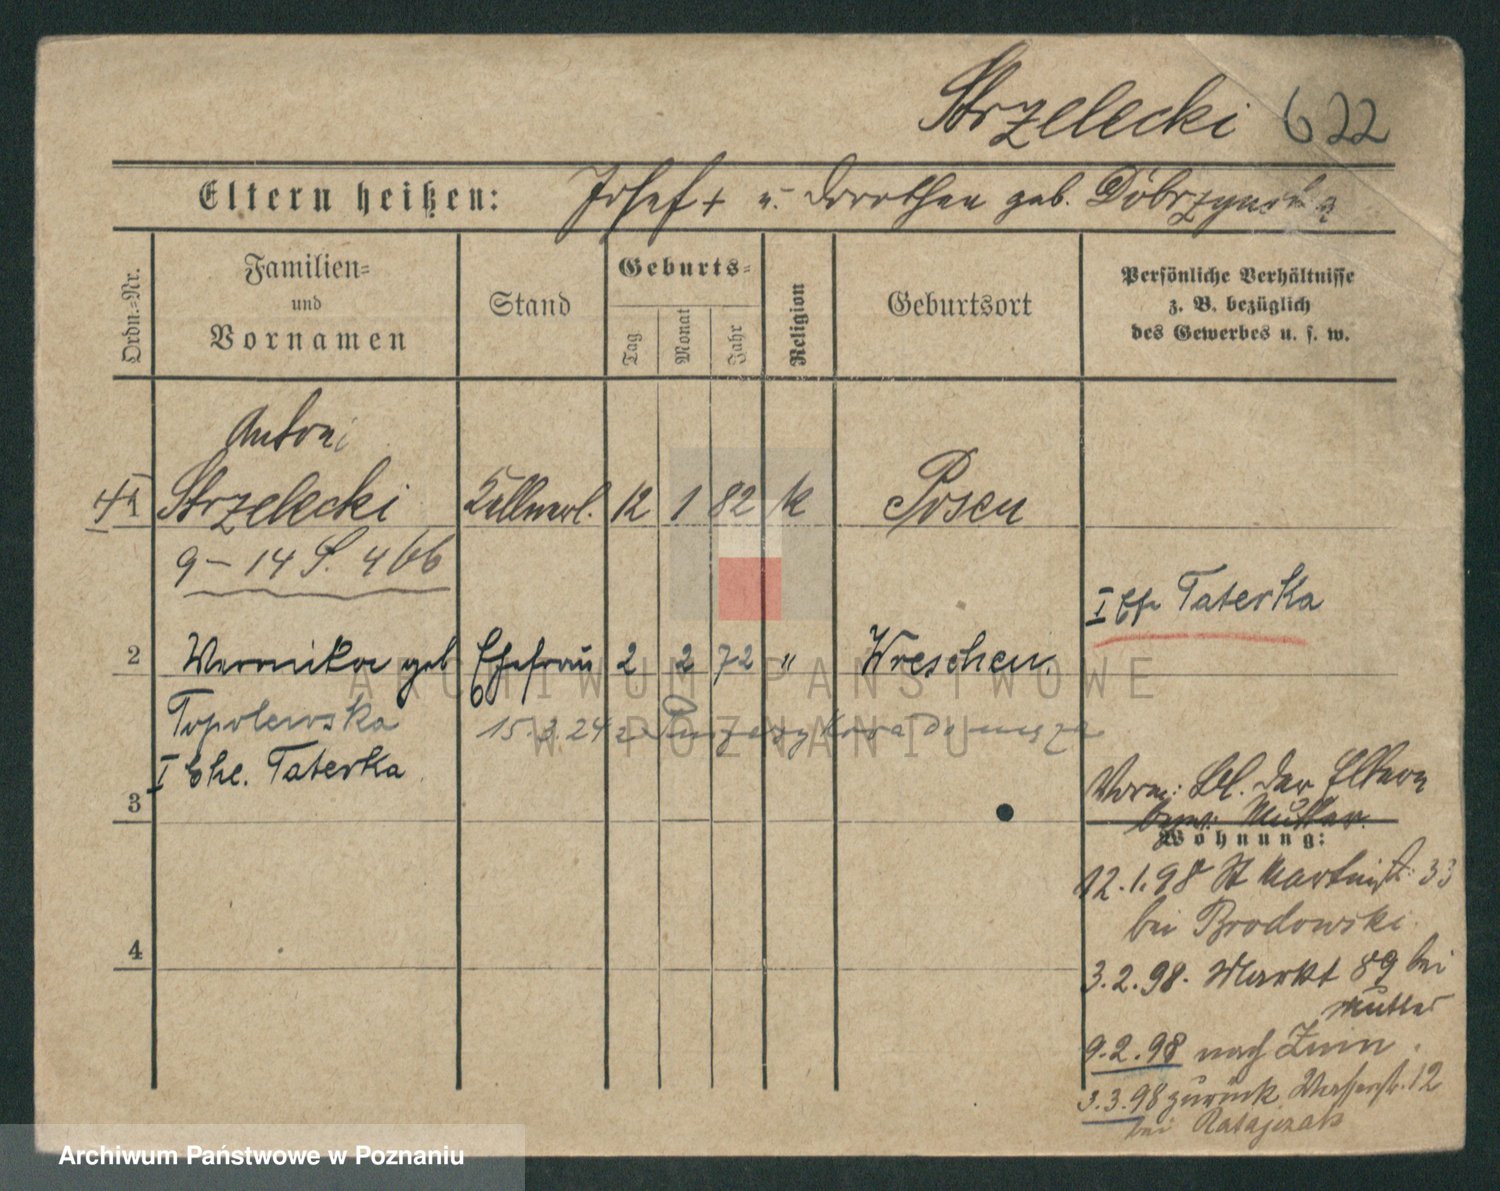 Strzelecki 622
Eltern heißen: Josef + u. Dorothea geb. Dobrzynska
Ordn.=Nr.
Familien=
und
Vornamen
Stand
Geburts=
Tag
Monat
Jahr
Religion
Geburtsort
Persönliche Verhältnisse
z. B. bezüglich
des Gewerbes u. s. w.
Antoni
Strzelecki
Kellnerl. 12 1 82 k Posen
9 – 14 S. 466
I Taterka
2 Weronika geb Ehefrau 2 2 72 " Wreschen
Topolewska
15.3.24 z
I Ehe. Taterka
3
Vorm: Bl. der Eltern
bezw: Mutter.
Wohnung:
12.1.98 St Martinst. 33
bei Brodowski
4
3.2.98. Markt 89 bei
Mutter
9.2.98 nach Znin.
3.3.98 zurück Wasserstr. 12
bei Ratajczak
ARCHIWUM PAŃSTWOWE
W POZNANIU
Archiwum Państwowe w Poznaniu